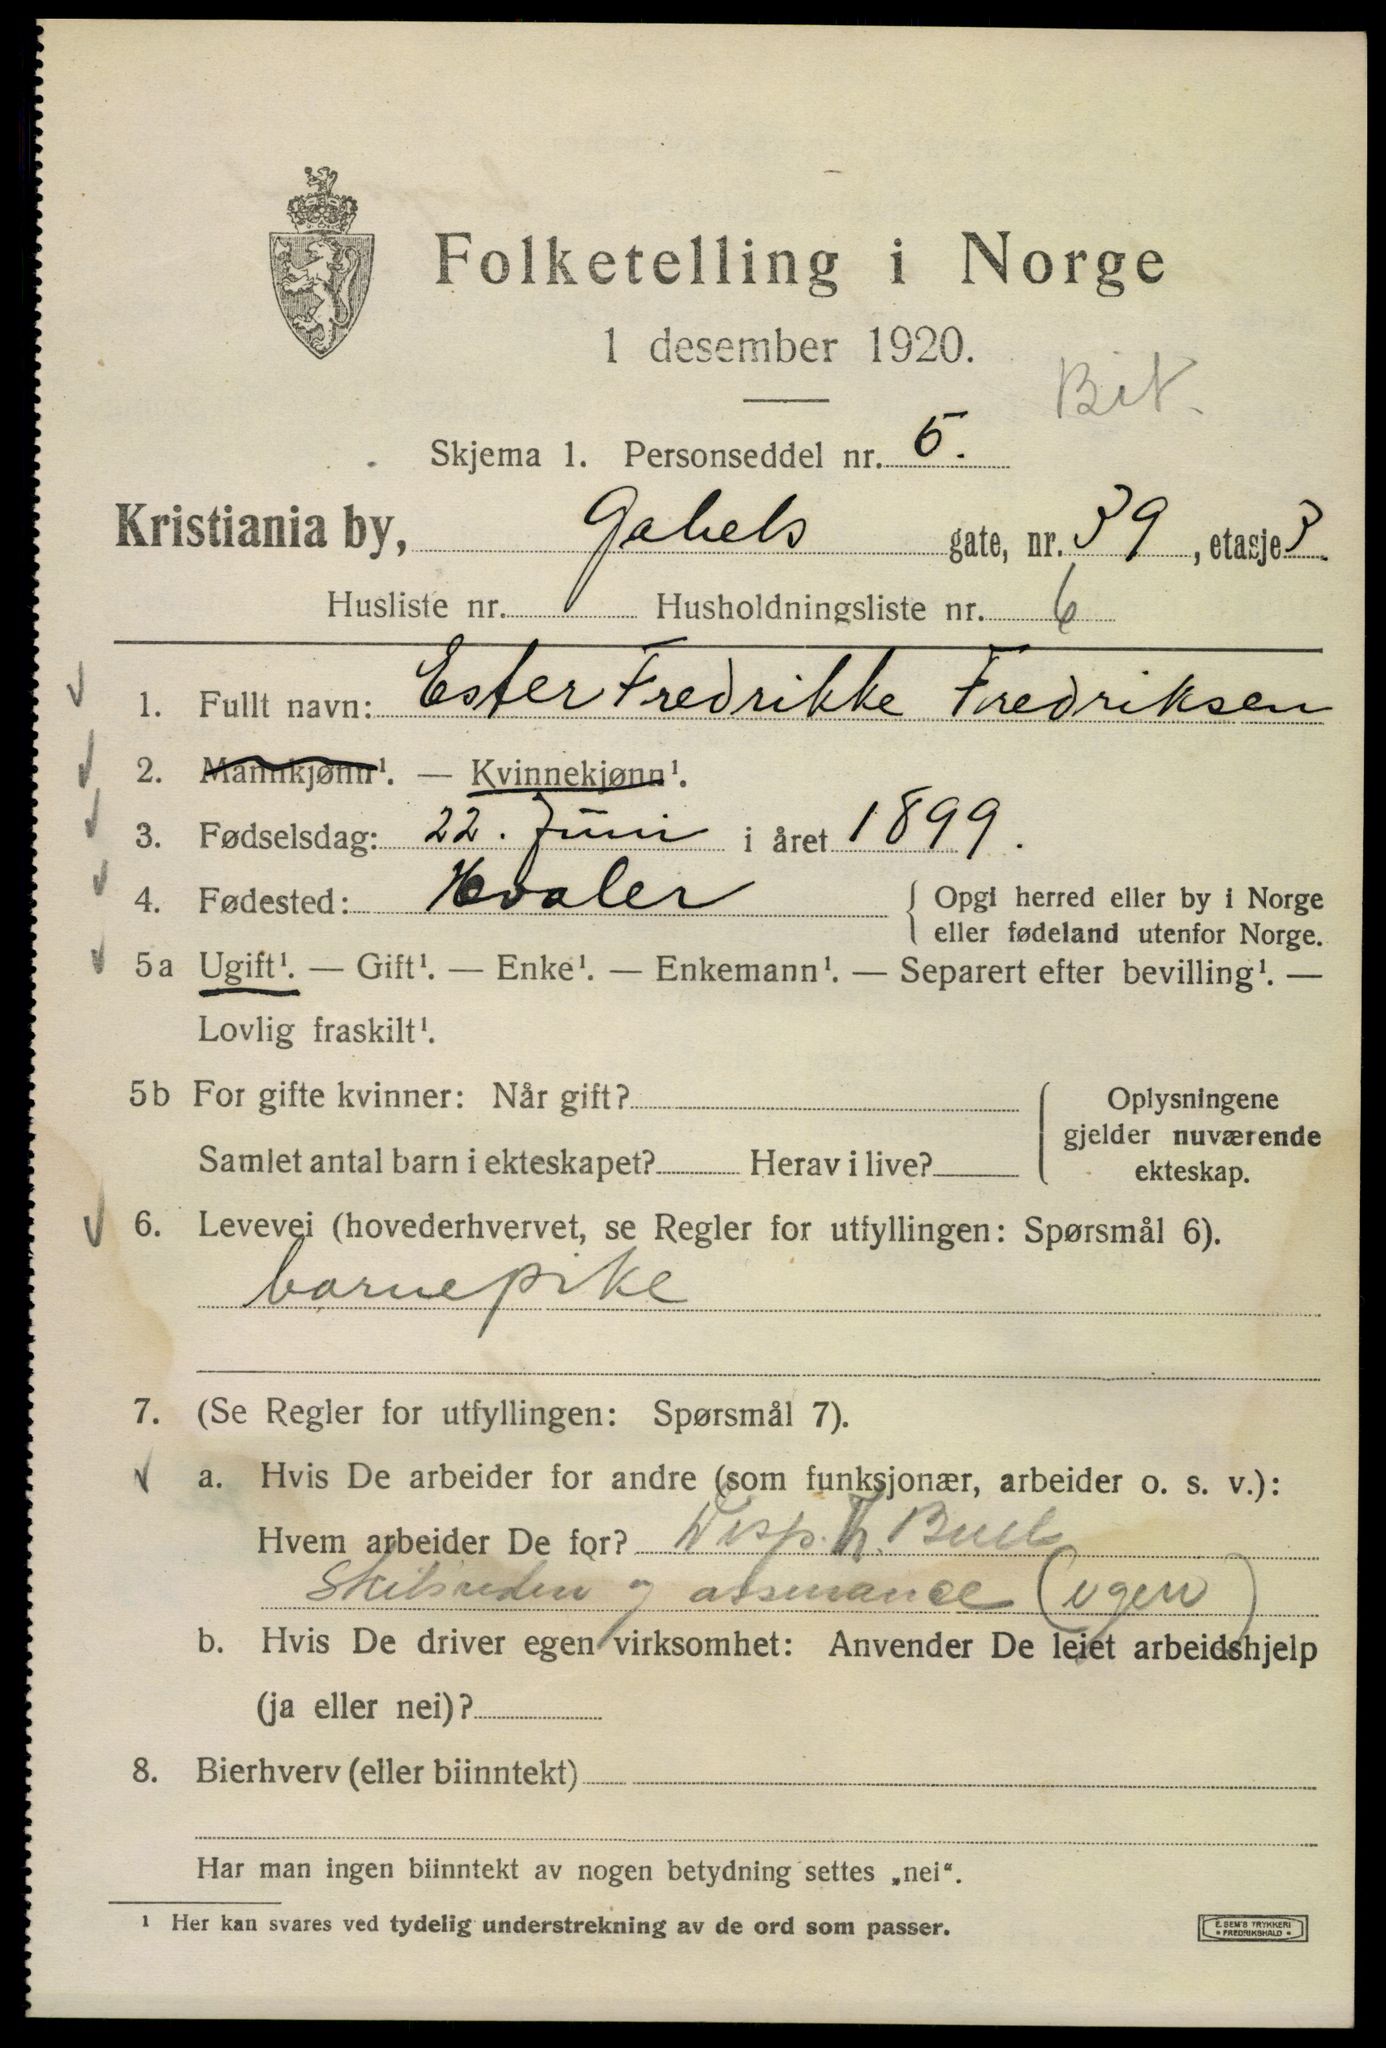 Folketelling i Norge
1 desember 1920.
Skjema 1. Personseddel nr. 5.
Kristiania by, Gabels gate, nr. 39, etasje 3.
Husliste nr. Husholdningsliste nr. 6
1. Fullt navn: Ester Fredrikke Fredriksen
2. Mannkjønn¹. — Kvinnekjønn¹.
3. Fødselsdag: 22. Juni i året 1899.
4. Fødested: Hvaler { Opgi herred eller by i Norge
eller fødeland utenfor Norge.
5a Ugift¹. — Gift¹. — Enke¹. — Enkemann¹. — Separert efter bevilling¹. —
Lovlig fraskilt¹.
5b For gifte kvinner: Når gift?
Samlet antal barn i ekteskapet? Herav i live?
{ Oplysningene
gjelder nuværende
ekteskap.
6. Levevei (hovederhvervet, se Regler for utfyllingen: Spørsmål 6).
barnepike
7. (Se Regler for utfyllingen: Spørsmål 7).
a. Hvis De arbeider for andre (som funksjonær, arbeider o. s. v.):
Hvem arbeider De for? Disp. Th. Buch
Skibsreden og assurance
b. Hvis De driver egen virksomhet: Anvender De leiet arbeidshjelp
(ja eller nei)?
8. Bierhverv (eller biinntekt)
Har man ingen biinntekt av nogen betydning settes „nei“.
¹ Her kan svares ved tydelig understrekning av de ord som passer.
E. SEM'S TRYKKERI
* FREDRIKSHALD *